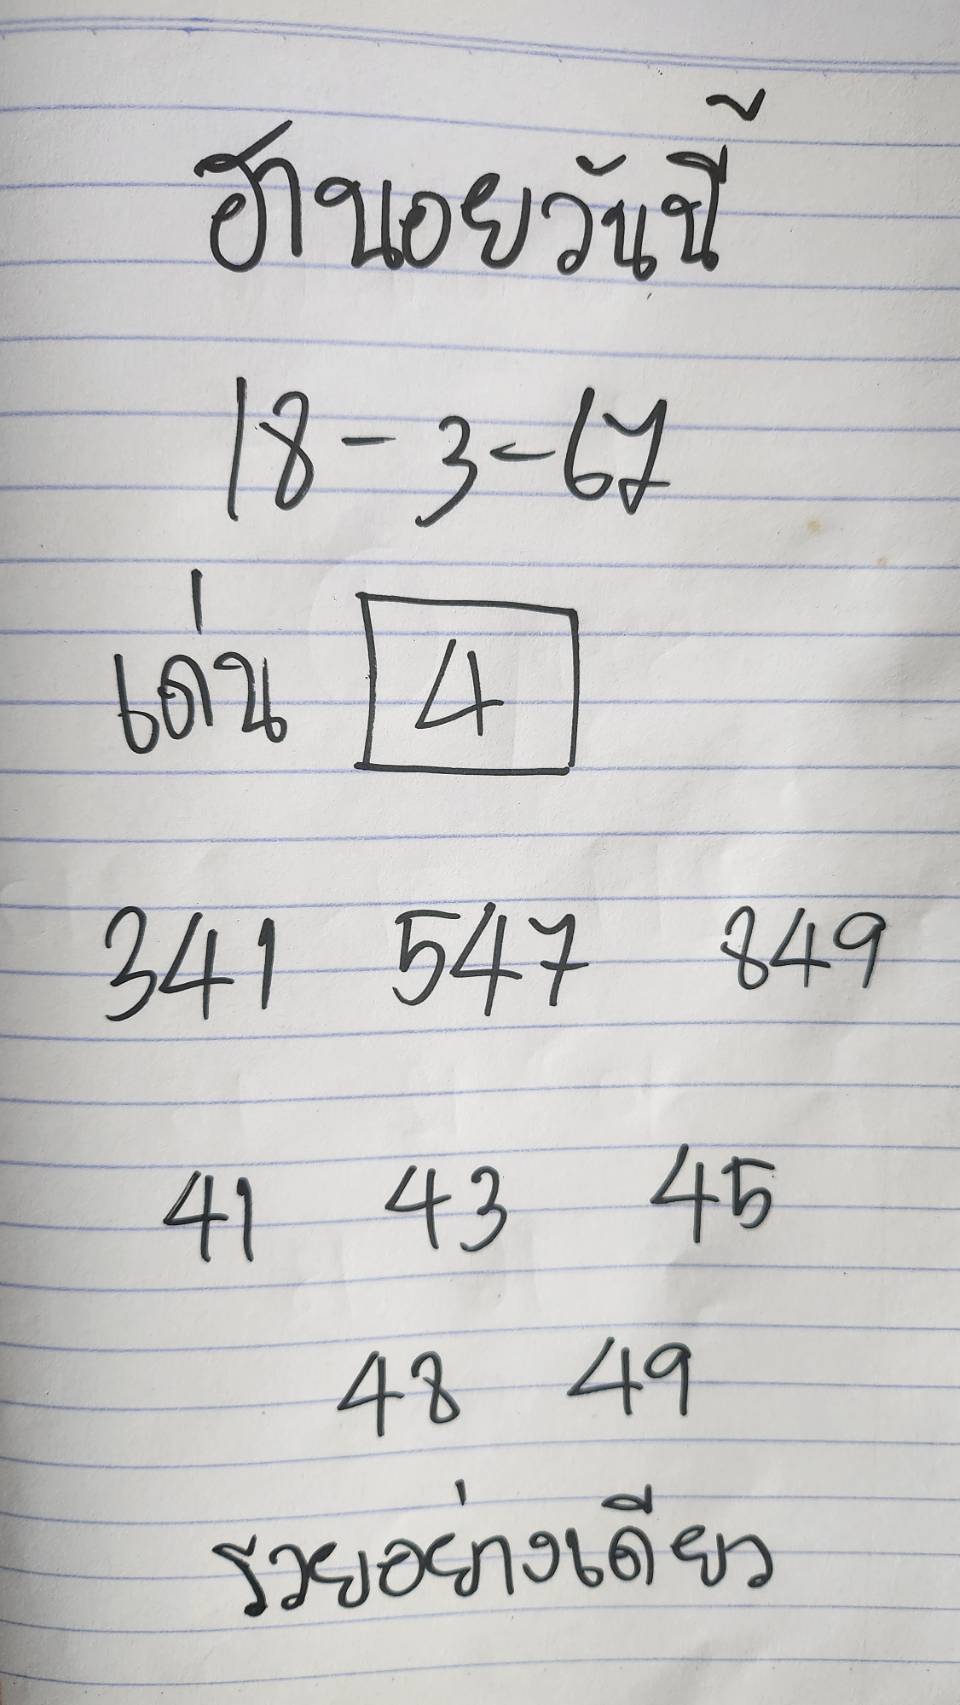 ฮานอยวันนี้
18-3-67
เด่น 4
341 547 849
41 43 45
48 49
รวยอย่างเดียว